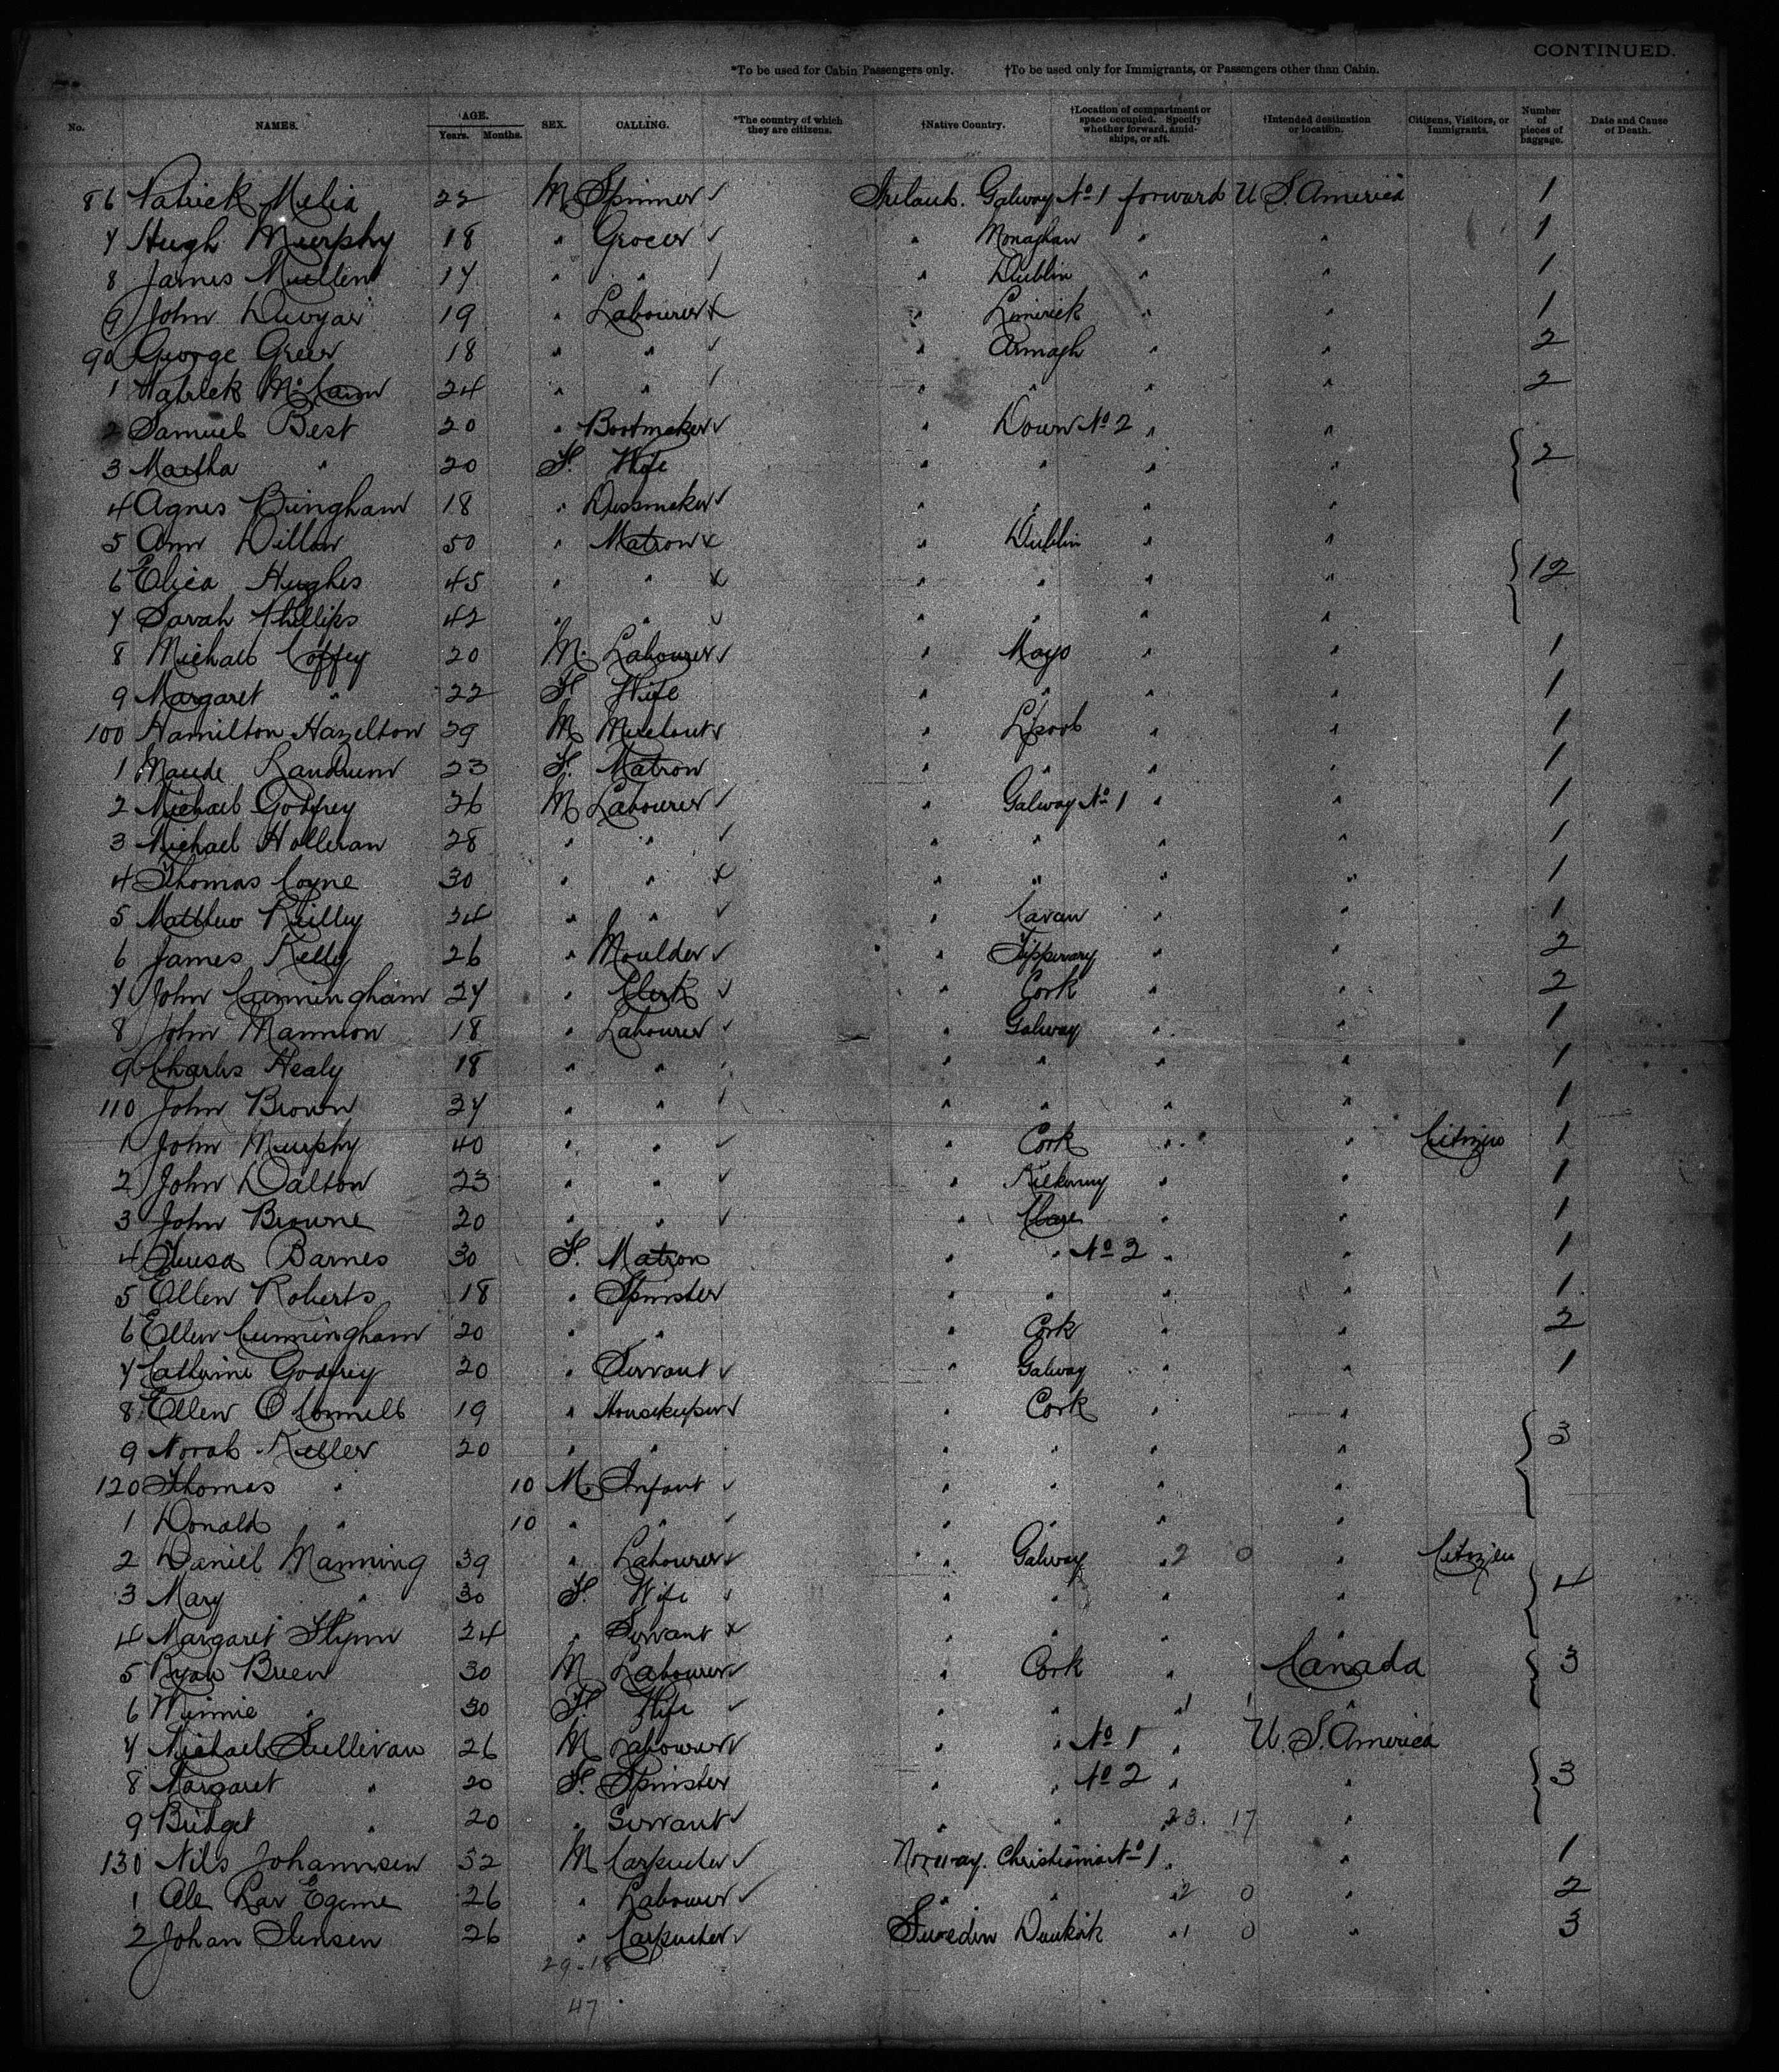 CONTINUED.
*To be used for Cabin Passengers only. †To be used only for Immigrants, or Passengers other than Cabin.
No. NAMES. AGE. Years. Months. SEX. CALLING. *The country of which they are citizens. †Native Country. †Location of compartment or space occupied. Specify whether forward, amidships, or aft. †Intended destination or location. Citizens, Visitors, or Immigrants. Number of pieces of baggage. Date and Cause of Death.
86 Patrick Melia 22 M Spinner ✓ Ireland. Galway No 1 forward U S. America 1
7 Hugh Murphy 18 " Grocer ✓ " Monaghan " " 1
8 James Mullen 17 " " / " Dublin " " 1
9 John Dwyar 19 " Labourer x " Limerick " " 1
90 George Greer 18 " " ✓ " Armagh " " 2
1 Patrick McCann 24 " " / " " " " 2
2 Samuel Best 20 " Bootmaker ✓ " Down No 2 " "
3 Martha " 20 F. Wife " " " " 2
4 Agnes Bingham 18 " Dressmaker ✓ " " " "
5 Ann Dillon 50 " Matron x " Dublin " "
6 Eliza Hughes 45 " " x " " " " 12
7 Sarah Phillips 42 " " ✓ " " " "
8 Michael Coffey 20 M. Labourer ✓ " Mayo " " 1
9 Margaret " 22 F. Wife " " " " 1
100 Hamilton Hazelton 39 M Merchant ✓ " L'pool " " 1
1 Maude 23 F. Matron " " " " 1
2 Michael Godfrey 26 M Labourer ✓ " Galway No 1 " " 1
3 Michael Holleran 28 " " ✓ " " " " 1
4 Thomas Coyne 30 " " x " " " " 1
5 Matthew Reilly 24 " " ✓ " Cavan " " 1
6 James Kelly 26 " Moulder ✓ " Tipperary " " 2
7 John Cunningham 27 " Clerk ✓ " Cork " " 2
8 John Mannion 18 " Labourer ✓ " Galway " " 1
9 Charles Healy 18 " " " " " " 1
110 John Brown 37 " " / " " " " 1
1 John Murphy 40 " " ✓ " Cork " " Citizen 1
2 John Dalton 23 " " ✓ " Kilkenny " " 1
3 John Browne 20 " " ✓ " Clare " " 1
4 Teresa Barnes 30 F. Matron " " No 2 " " 1
5 Ellen Roberts 18 " Spinster " " " " 1
6 Ellen Cunningham 20 " " " Cork " " 2
7 Catherine Godfrey 20 " Servant ✓ " Galway " " 1
8 Ellen O'Connell 19 " Housekeeper ✓ " Cork " "
9 Norah Keller 20 " " " " " " 3
120 Thomas " 10 M. Infant ✓ " " " "
1 Donald " 10 " " ✓ " " " "
2 Daniel Manning 39 " Labourer ✓ " Galway " 2 0 " Citizen
3 Mary " 30 F. Wife ✓ " " " " 4
4 Margaret Flynn 24 " Servant x " " " "
5 Ryan Breen 30 M Labourer ✓ " Cork " Canada 3
6 Minnie " 30 F. Wife ✓ " " 1 1 "
7 Michael Sullivan 26 M Labourer ✓ " " No 1 " U. S. America
8 Margaret " 20 F. Spinster " " No 2 " " 3
9 Bridget " 20 " Servant ✓ " " 23. 17 "
130 Nils Johannsen 32 M Carpenter ✓ Norway. Christiania No 1 " " 1
1 Ole 26 " Labourer ✓ " " " 2 0 " 2
2 Johan Jensen 26 " Carpenter ✓ Sweden " 1 0 " 3
29-18
47